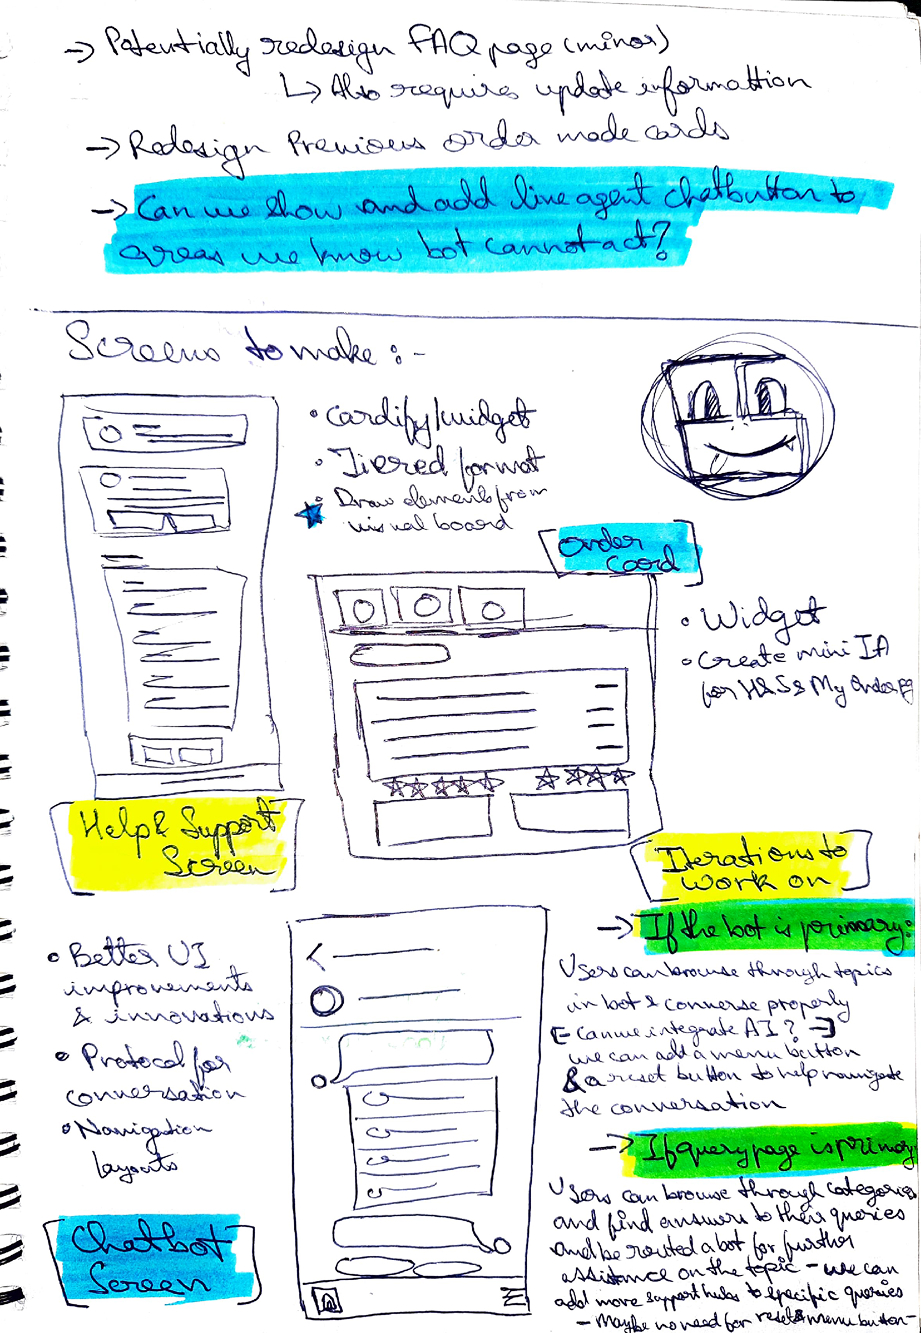 -> Potentially redesign FAQ page (minor)
↳ Also requires update informattion
-> Redesign Previous order made cards
-> Can we show and add live agent chatbutton to
areas we know bot cannot act?
Screens to make :-
• Cardify/widget
• Tiered format
• Draw elements from
visual board
Order
Card
• Widget
• Create mini IA
for H&S & My Order pg
Help & Support
Screen
Iterations to
work on
-> If the bot is primary:
Users can browse through topics
in bot & converse properly
[- Can we integrate AI? -]
we can add a menu button
& a reset button to help navigate
the conversation
• Better UI
improvements
& innovations
• Protocol for
conversation
• Navigation
layouts
Chatbot
Screen
-> If query page is primary
Users can browse through categories
and find answers to their queries
and be routed a bot for further
assistance on the topic - we can
add more support hubs to specific queries
- Maybe no need for reset & menu button -